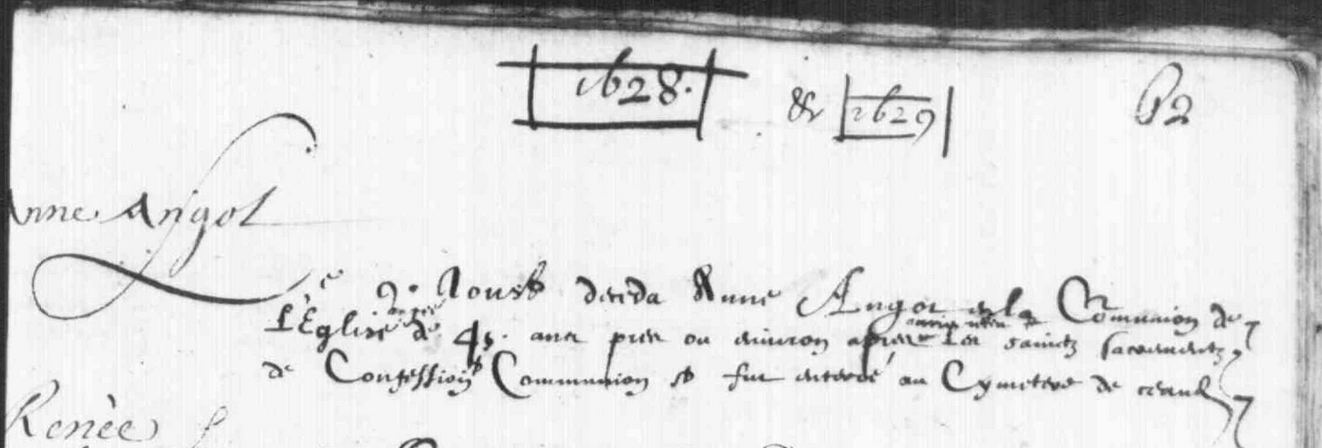 1628. & 1629 P2
Anne Angol
Le 2e Aoust deceda Anne Angot en la Communion de
L'Eglise aagee de 45. ans pres ou environ apres avoir receu les saincts sacrements
de Confession & Communion et fut enterré au Cymetere de ceans
Renée